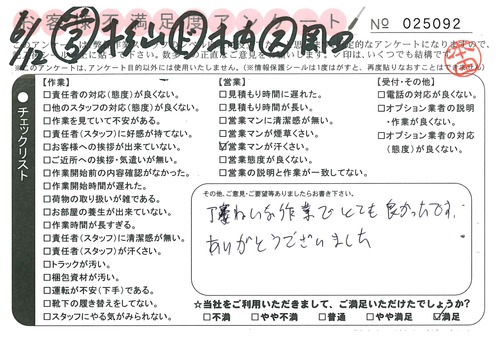 お客様不満足度アンケート
№ 025092
チェックリスト
【作業】
□責任者の対応(態度)が良くない。
□他のスタッフの対応(態度)が良くない。
□作業を見ていて不安がある。
□責任者(スタッフ)に好感が持てない。
□お客様への挨拶が出来ていない。
□ご近所への挨拶・気遣いが無い。
□作業開始前の内容確認がなかった。
□作業開始時間が遅れた。
□荷物の取り扱いが雑である。
□お部屋の養生が出来ていない。
□作業時間が長すぎる。
□責任者(スタッフ)に清潔感が無い。
□責任者(スタッフ)が汗くさい。
□トラックが汚い。
□梱包資材が汚い。
□運転が不安(下手)である。
□靴下の履き替えをしてない。
□スタッフにやる気がみられない。
【営業】
□見積もり時間に遅れた。
□見積もり時間が長い。
□営業マンに清潔感が無い。
□営業マンが煙草くさい。
☑営業マンが汗くさい。
□営業態度が良くない。
□営業の説明と作業が一致してない。
【受付・その他】
□電話の対応が良くない。
□オプション業者の説明
・作業が良くない。
□オプション業者の対応
(態度)が良くない。
その他、ご意見・ご要望等ありましたらお書き下さい。
丁寧ねいな作業でとても良かったです.
ありがとうございました
☆当社をご利用いただきまして、ご満足いただけたでしょうか?
□不満 □やや不満 □普通 □やや満足 ☑満足